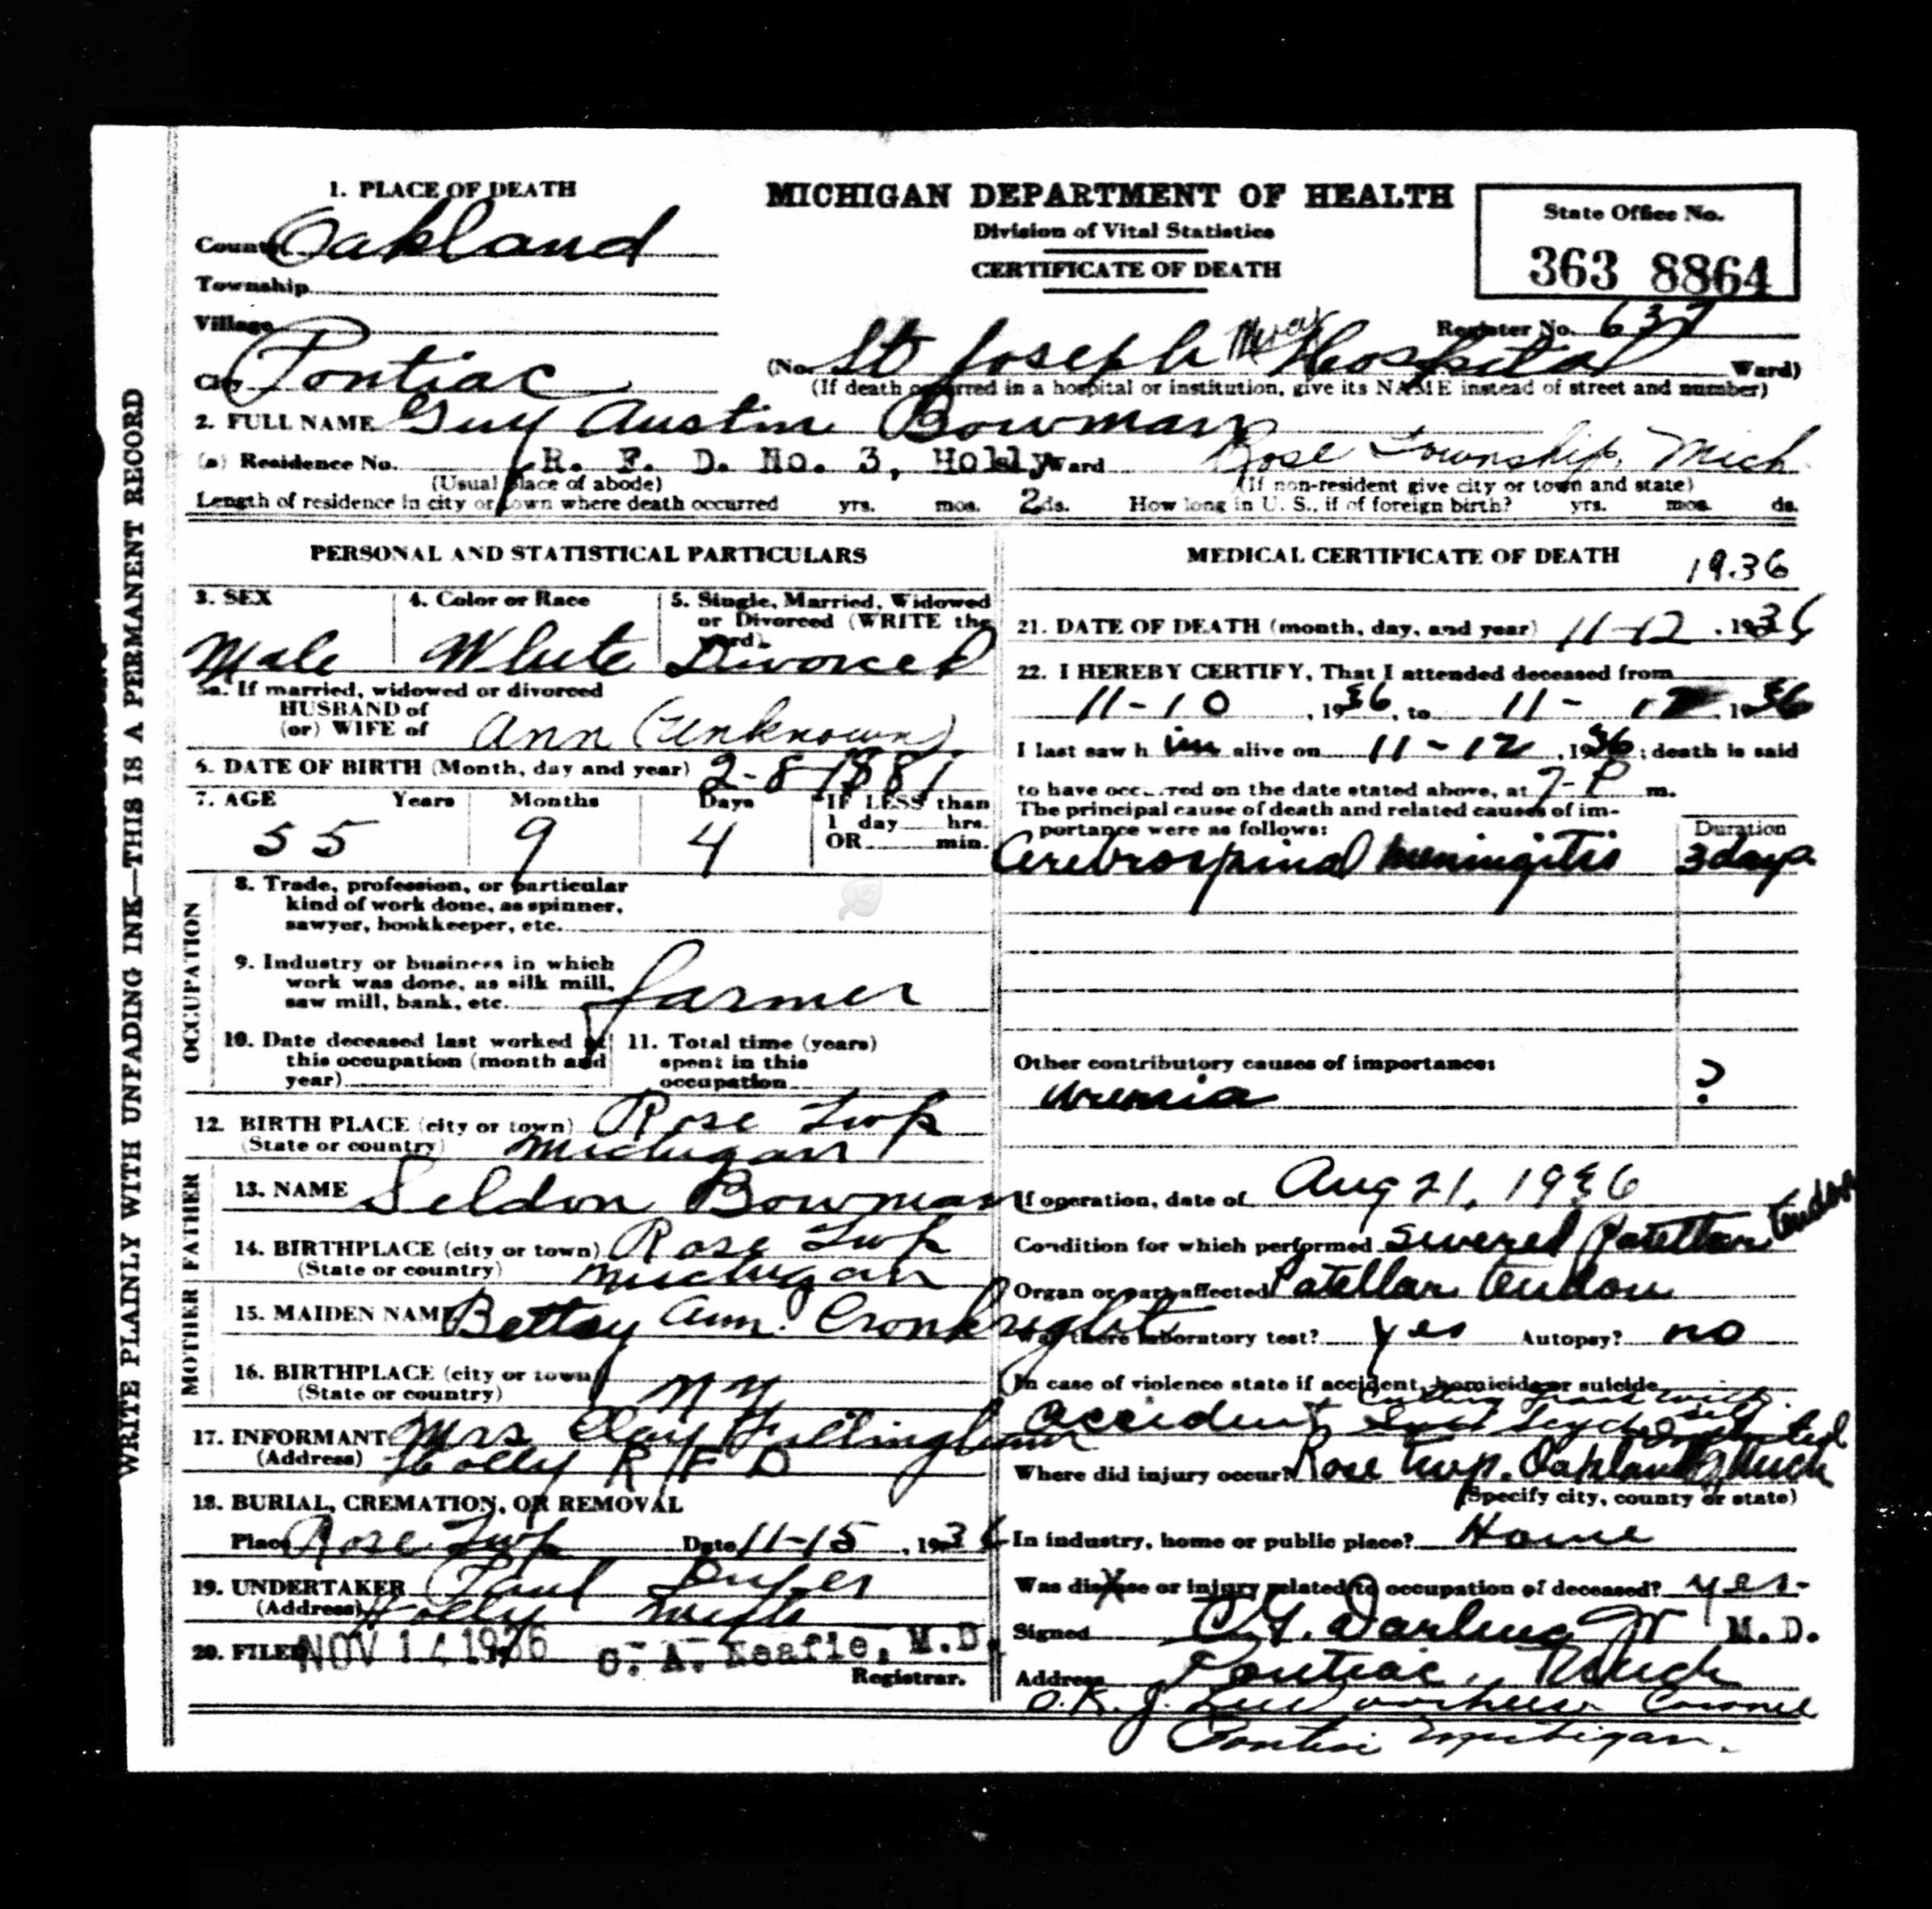 WRITE PLAINLY WITH UNFADING INK—THIS IS A PERMANENT RECORD
1. PLACE OF DEATH
County Oakland
Township
Village
City Pontiac
MICHIGAN DEPARTMENT OF HEALTH
Division of Vital Statistics
CERTIFICATE OF DEATH
State Office No.
363 8864
Register No. 637
(No. St Joseph Mercy Hospital Ward)
(If death occurred in a hospital or institution, give its NAME instead of street and number)
2. FULL NAME Guy Austin Bowman
(a) Residence No. R. F. D. No. 3, Holly Ward Rose Township, Mich
(Usual place of abode) (If non-resident give city or town and state)
Length of residence in city or town where death occurred yrs. mos. 2 ds. How long in U. S., if of foreign birth? yrs. mos. ds.
PERSONAL AND STATISTICAL PARTICULARS
3. SEX
Male
4. Color or Race
White
5. Single, Married, Widowed
or Divorced (WRITE the
word).
Divorced
5a. If married, widowed or divorced
HUSBAND of
(or) WIFE of Ann (Unknown)
6. DATE OF BIRTH (Month, day and year) 2-8-1881
7. AGE Years Months Days
55 9 4
IF LESS than
1 day hrs.
OR min.
OCCUPATION
8. Trade, profession, or particular
kind of work done, as spinner,
sawyer, bookkeeper, etc.
9. Industry or business in which
work was done, as silk mill,
saw mill, bank, etc. farmer
10. Date deceased last worked at
this occupation (month and
year)
11. Total time (years)
spent in this
occupation
12. BIRTH PLACE (city or town) Rose Twp
(State or country) Michigan
FATHER
13. NAME Seldon Bowman
14. BIRTHPLACE (city or town) Rose Twp
(State or country) Michigan
MOTHER
15. MAIDEN NAME Bettsy Ann Cronkright
16. BIRTHPLACE (city or town)
(State or country) N Y
17. INFORMANT Mrs Clay Fillingham
(Address) Holly R F D
18. BURIAL, CREMATION, OR REMOVAL
Place Rose Twp Date 11-15, 1936
19. UNDERTAKER Paul
(Address) Holly Mich
20. FILED NOV 14 1936 C. A. Neafie, M.D.
Registrar.
MEDICAL CERTIFICATE OF DEATH
1936
21. DATE OF DEATH (month, day, and year) 11-12, 1936
22. I HEREBY CERTIFY, That I attended deceased from
11-10, 1936, to 11-12, 1936
I last saw h im alive on 11-12, 1936; death is said
to have occurred on the date stated above, at 7-P m.
The principal cause of death and related causes of im-
portance were as follows:
Duration
Cerebrospinal meningitis 3 days
Other contributory causes of importance:
uremia ?
If operation, date of Aug 21, 1936
Condition for which performed Severed Patellar tendon
Organ or part affected Patellar tendon
Was there laboratory test? yes Autopsy? no
In case of violence state if accident, homicide or suicide
accident cutting with
Where did injury occur? Rose Twp. Oakland Mich
(Specify city, county or state)
In industry, home or public place? Home
Was disease or injury related to occupation of deceased? yes-
Signed C. G. Darling Jr M. D.
Address Pontiac, Mich
O.K. J. Lee Voorhees Coroner
Pontiac Michigan.